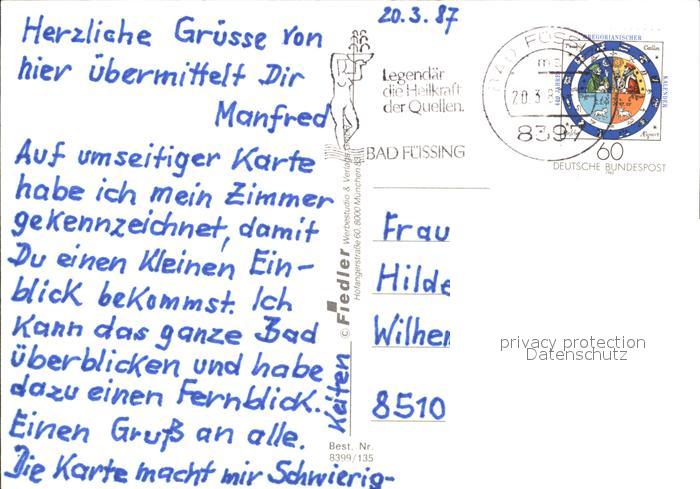 20.3.87
Herzliche Grüsse von
hier übermittelt Dir
Manfred
Auf umseitiger Karte
habe ich mein Zimmer
gekennzeichnet, damit
Du einen kleinen Ein-
blick bekommst. Ich
kann das ganze Bad
überblicken und habe
dazu einen Fernblick.
Einen Gruß an alle.
Die Karte macht mir Schwierig-
keiten
Legendär
die Heilkraft
der Quellen.
BAD FÜSSING
BAD FÜSS
20.3.
8397
GREGORIANISCHER
KALENDER
60
DEUTSCHE BUNDESPOST
© Fiedler Werbestudio & Verlags
Hofangerstraße 60, 8000 München 83
Best. Nr.
8399/135
Frau
Hilde
Wilhe
8510
privacy protection
Datenschutz